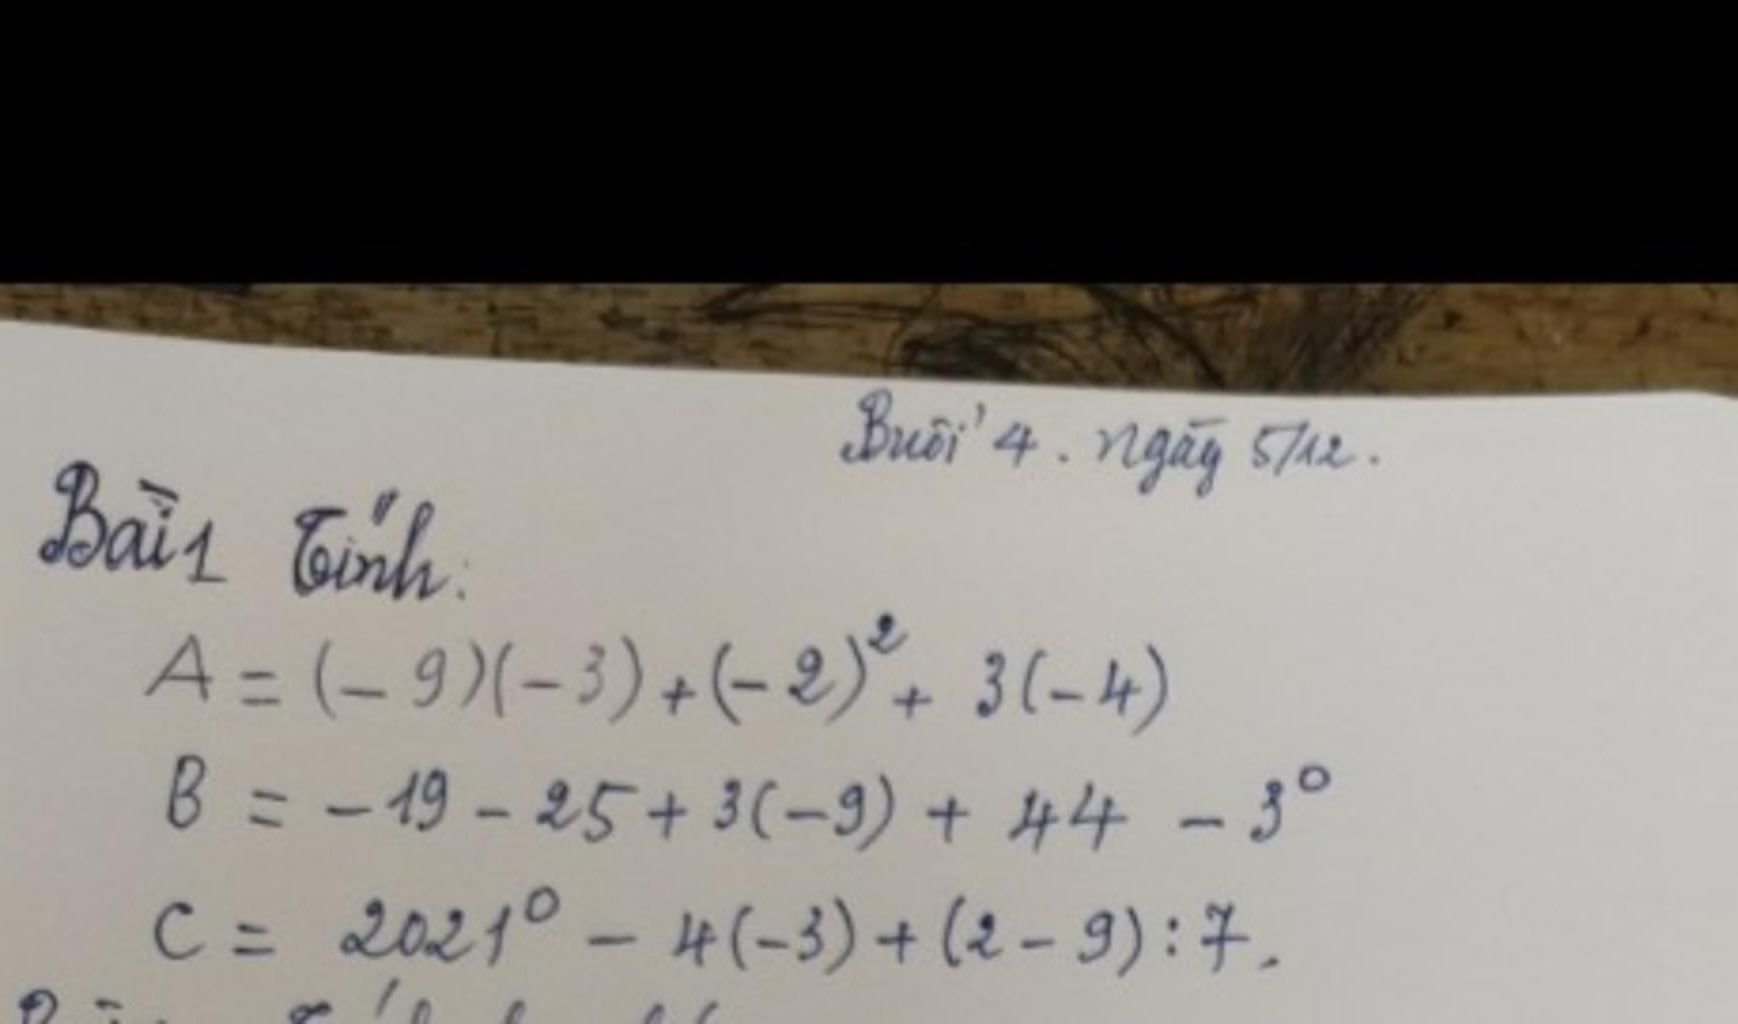 Buổi 4. Ngày 5/12.
Bài 1 Tính:
A = (-9)(-3) + (-2)² + 3(-4)
B = -19 - 25 + 3(-9) + 44 - 3⁰
C = 2021⁰ - 4(-3) + (2 - 9) : 7.